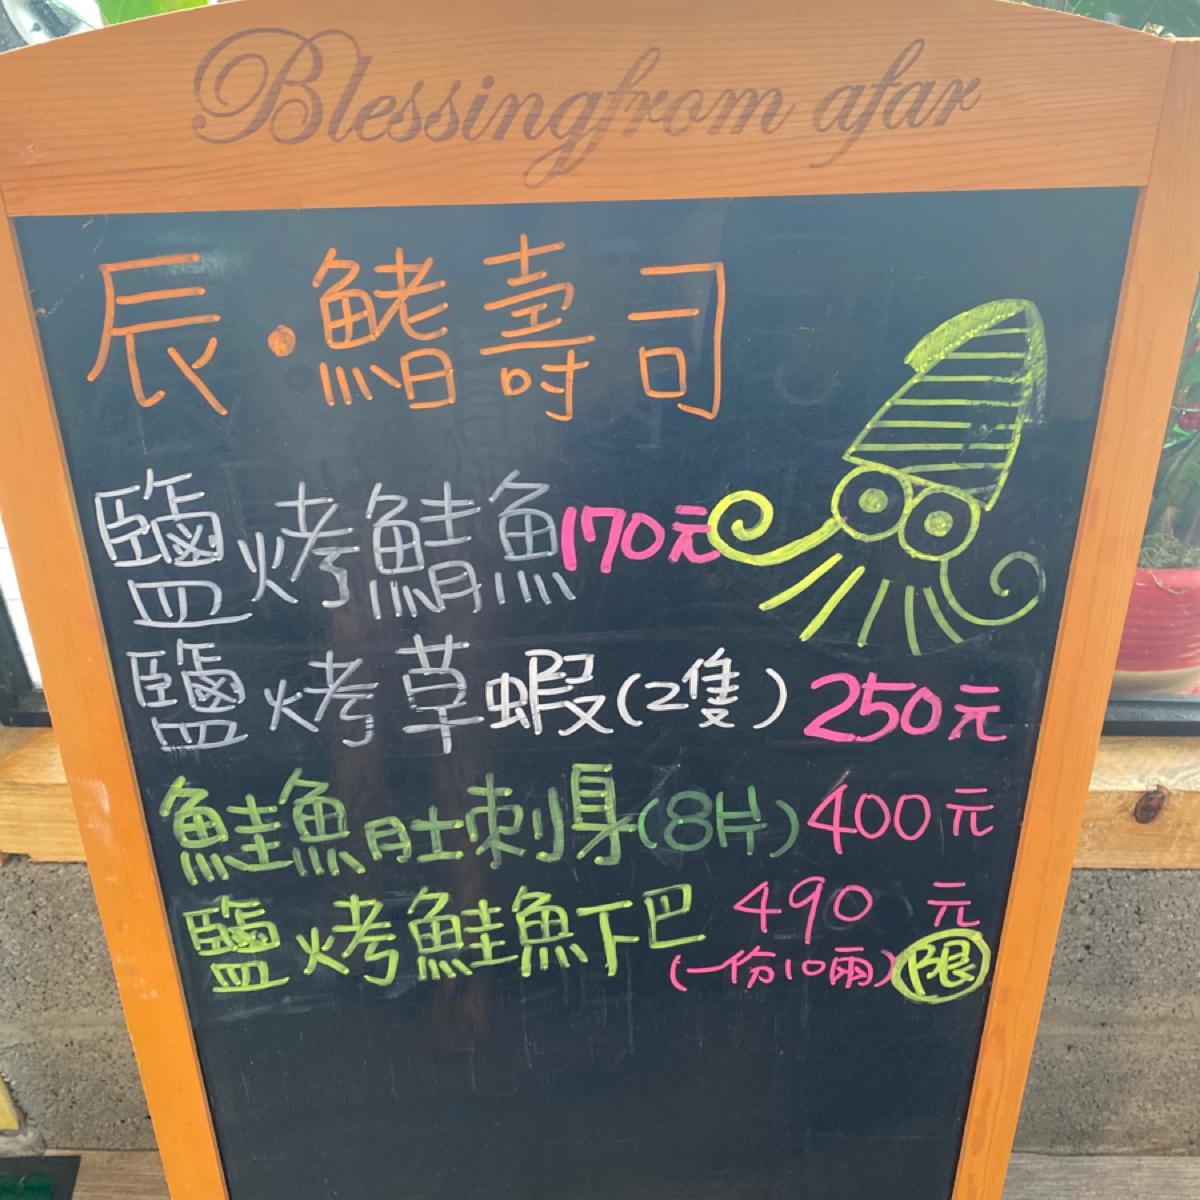 Blessing from afar
辰·鰭壽司
鹽烤鯖魚170元
鹽烤草蝦(2隻)250元
鮭魚肚刺身(8片)400元
鹽烤鮭魚下巴 490元
(一份10兩)限